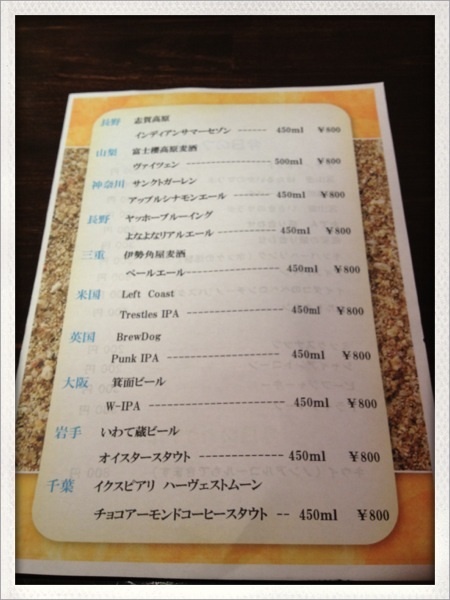 長野 志賀高原
インディアンサマーセゾン ------ 450ml ￥800
山梨 富士櫻高原麦酒
ヴァイツェン ---------------- 500ml ￥800
神奈川 サンクトガーレン
アップルシナモンエール --------- 450ml ￥800
長野 ヤッホーブルーイング
よなよなリアルエール ---------- 450ml ￥800
三重 伊勢角屋麦酒
ペールエール ------------------- 450ml ￥800
米国 Left Coast
Trestles IPA -------------------- 450ml ￥800
英国 BrewDog
Punk IPA ---------------------- 450ml ￥800
大阪 箕面ビール
W-IPA -------------------------- 450ml ￥800
岩手 いわて蔵ビール
オイスタースタウト --------------- 450ml ￥800
千葉 イクスピアリ ハーヴェストムーン
チョコアーモンドコーヒースタウト -- 450ml ￥800